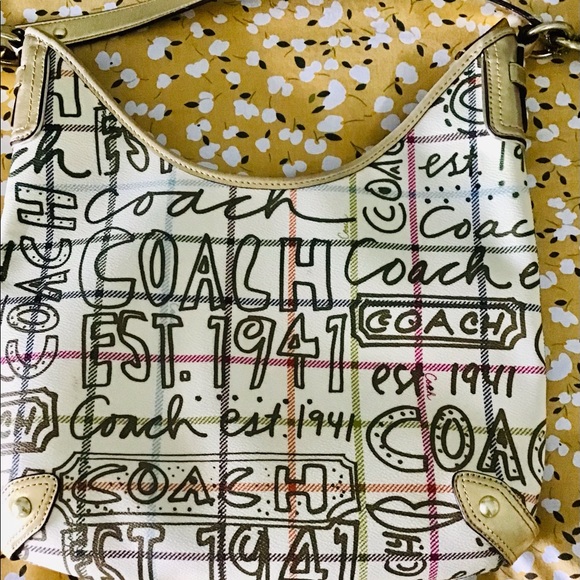 EST.
est. 1
COACH
Coach
Coac
COACH
COACH
Coach e
EST. 1941
COACH
est 1941
Coach est 1941
COAC
COACH
EST 1941